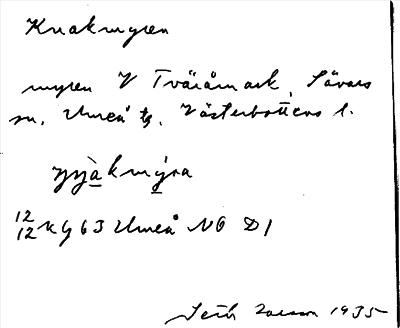 Knakmyren
myren V Tväråmark, Sävars
sn, Umeå tg, Västerbottens l.
kmýra
12
12 Kg 63 Umeå NO D1
1935